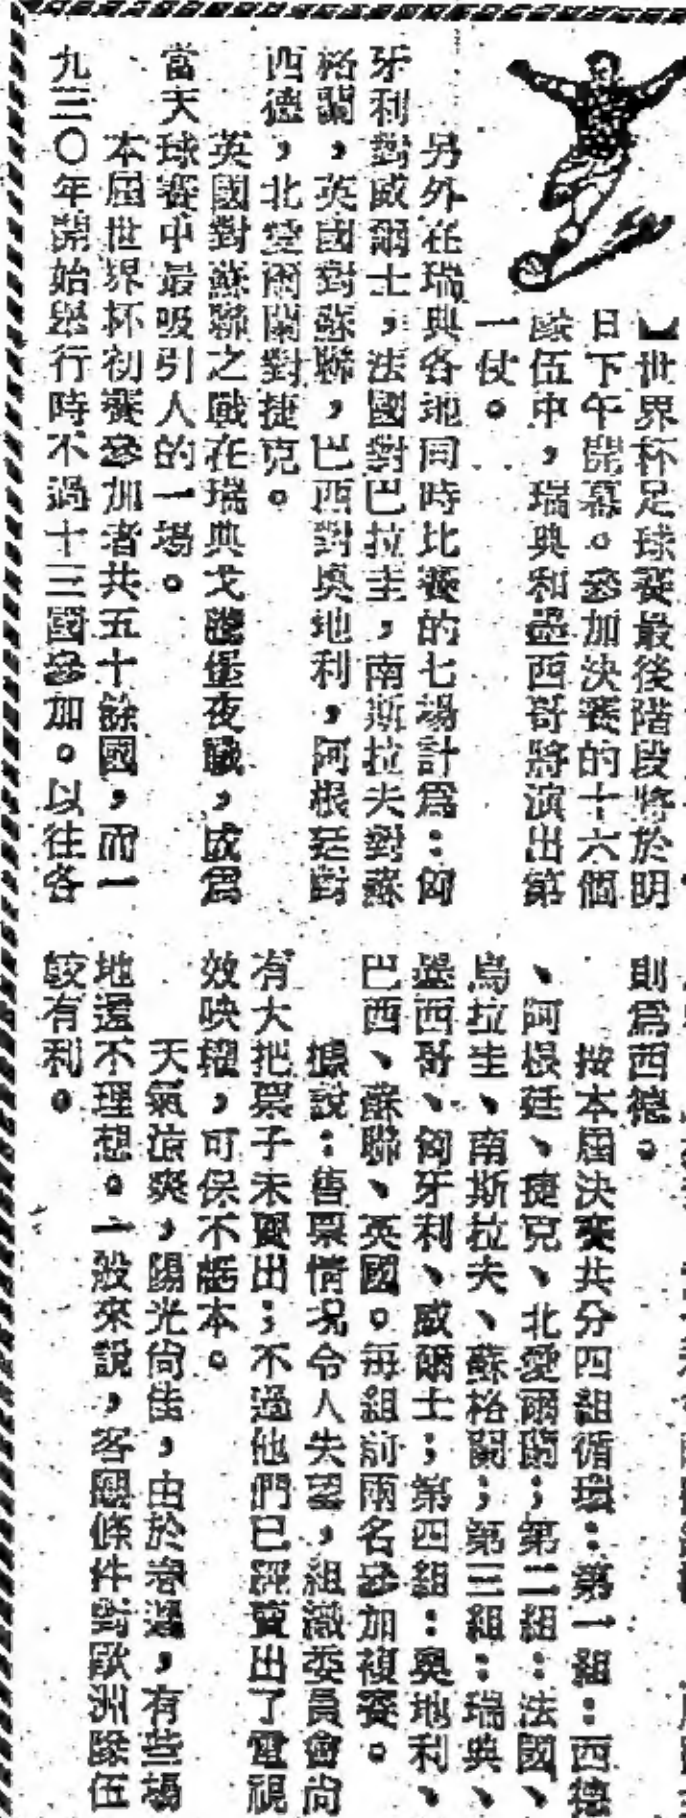 】世界杯足球賽最後階段將於明
日下午開幕。參加決賽的十六個
隊伍中,瑞典和墨西哥將演出第
一仗。
另外在瑞典各地同時比賽的七場計爲:匈
牙利對威爾士,法國對巴拉圭,南斯拉夫對蘇
格蘭,英國對蘇聯,巴西對奧地利,阿根廷對
西德,北愛爾蘭對捷克。
英國對蘇聯之戰在瑞典戈騰堡夜戰,成爲
當天球賽中最吸引人的一場。
本屆世界杯初賽參加者共五十餘國,而一
九三〇年開始舉行時不過十三國參加。以往各
則爲西德。
按本屆決賽共分四組循環:第一組:西德
、阿根廷、捷克、北愛爾蘭;第二組:法國、
烏拉圭、南斯拉夫、蘇格蘭;第三組:瑞典、
墨西哥、匈牙利、威爾士;第四組:奧地利、
巴西、蘇聯、英國。每組前兩名參加複賽。
據說:售票情况令人失望,組織委員會尙
有大把票子未賣出;不過他們已經賣出了電視
效映權,可保不虧本。
天氣凉爽,陽光尙佳,由於春遲,有些場
地還不理想。一般來說,客觀條件對歐洲隊伍
較有利。